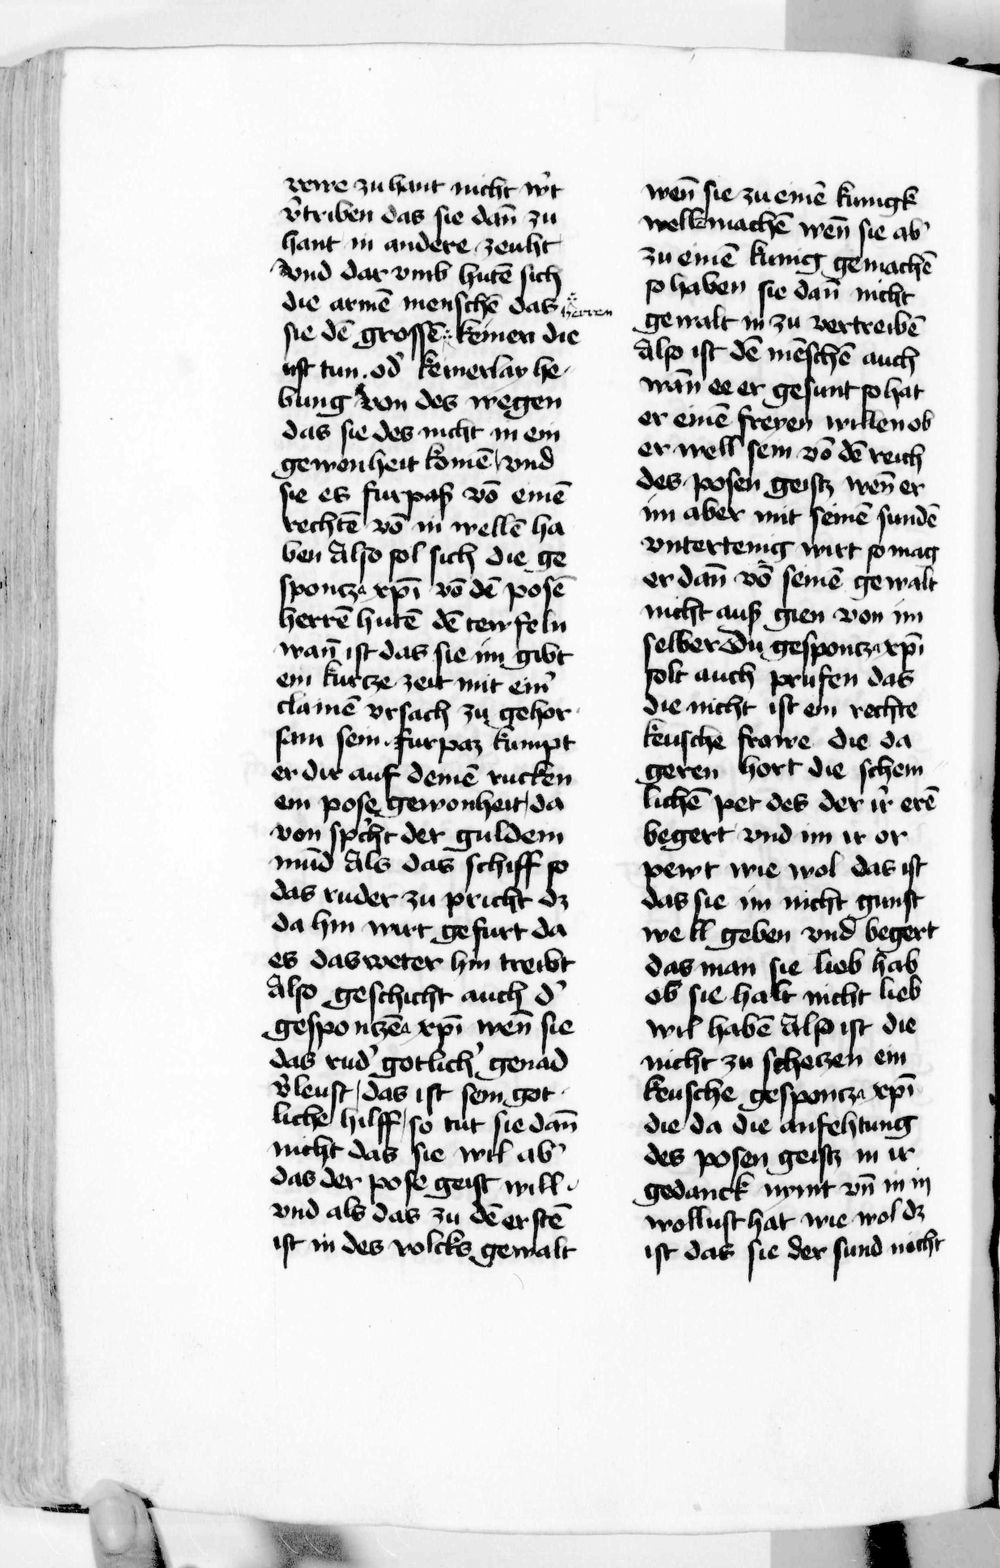 rewe zu hant nicht w't
v'triben das sie dan̄ zu
hant in andere zeuht
Vnd dar vmb hutē sich
die armē menschē das
herren
sie dē grossē keinen die
nst tun od' keinerlay he
bung Von des wegen
das sie des nicht in ein
gewonheit komē vnd
sie es furpaß vō einē
rechtē vō in wellē ha
ben Also sol sich die ge
sponcz xp̄i vō dē posē
herrē hutē dē tewfeln
wan̄ ist das sie im gibt
ein kurcze zeit mit eim̄
clainē vrsach zu gehor
sam sein furpaz kumpt
er dir auf deinē rucken
ein pose gewonheit da
von sp'cht der guldein
mūd Als das schiff so
das ruder zu pricht dz
da hin wirt gefurt da
es das weter hin treibt
Also geschicht auch d'
gesponczē xp̄i wen̄ sie
das rud' gotlich' genad
v'leust das ist sein got
liche hilff so tut sie dan̄
nicht das sie wil ab'
das der pose geist will
vnd als das zu dē erstē
ist in des volcks gewalt
wen̄ sie zu einē kunigk
well machē wen̄ sie ab'
zu einē kunig gemachē
so haben sie dan̄ nicht
gewalt in zu vertreibē
Also ist dē mēschē auch
wan̄ ee er gesunt so hat
er einē freyen willen ob
er well sein vō dē reich
des posen geistz wen̄ er
im aber mit seinē sundē
vntertenig wirt so mag
er dan̄ vō seinē gewalt
nicht auß gien von im
selber Du gesponcz xp̄i
solt auch prufen das
die nicht ist ein rechte
keusche frawe die da
geren hort die schem
lichē pet des der ir erē
begert vnd im ir or
pewt wie wol das ist
das sie im nicht gunst
well geben vnd begert
das man sie lieb hab
ob sie halt nicht lieb
wil habē Also ist die
nicht zu schetzen ein
keusche gesponcz xp̄i
die da die anfehtung
des posen geistz in ir
gedanck nymt vn̄ in in
wollust hat wie wol dz
ist das sie der sund nicht